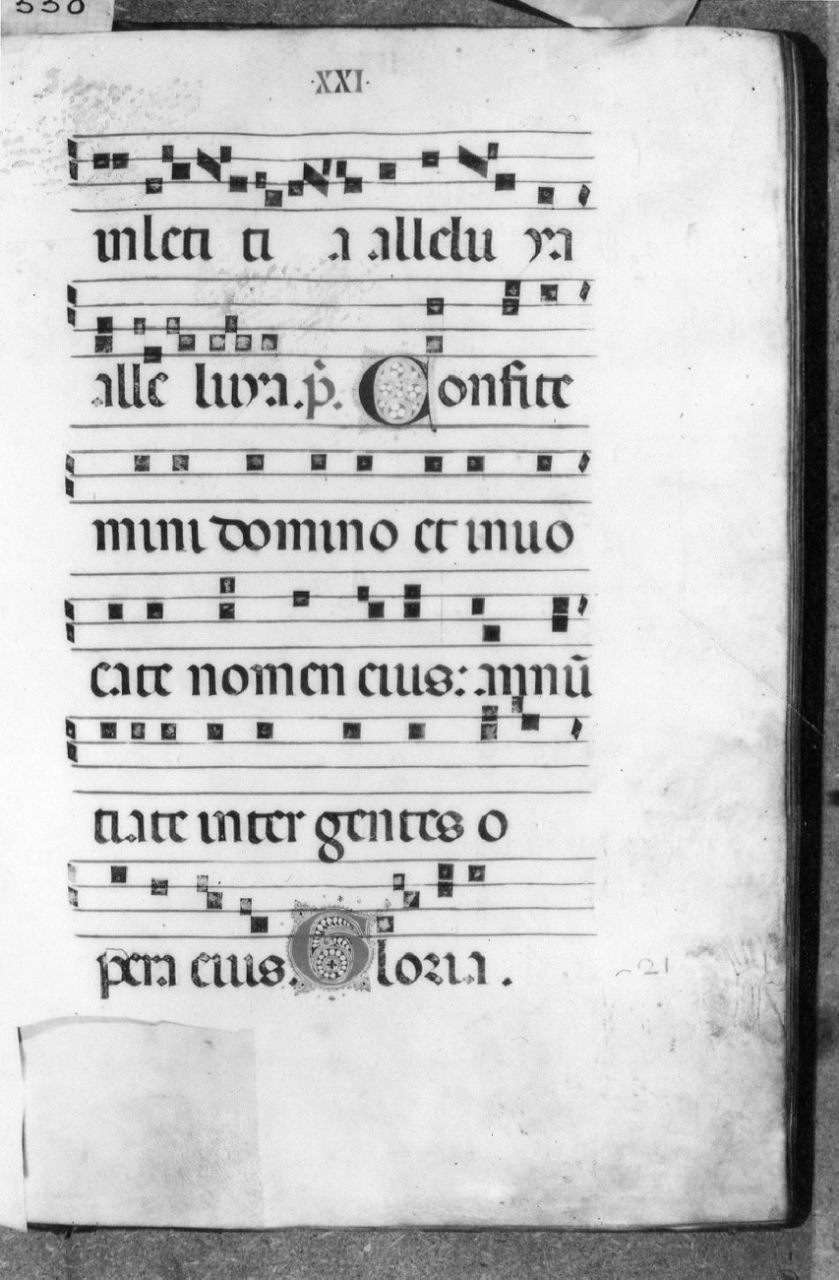 338
·XXI·
in leti ti a allelu ya
alle luya. p̄. Confite
mini domino et inuo
cate nomen eius: annū
tiate inter gentes o
pera eius. Gloria.
21